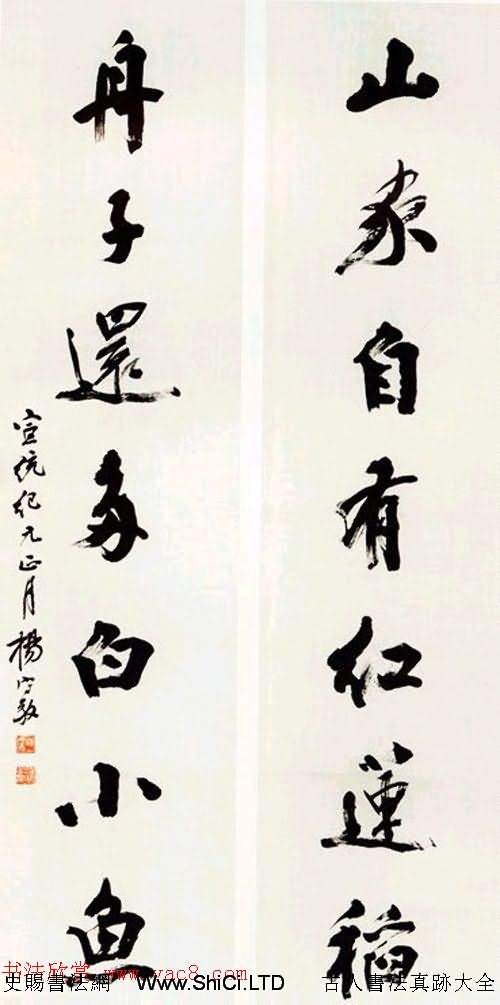 山家自有紅蓮稻
舟子還多白小魚
宣統紀元正月楊守敬
书法欣赏 www.yac8.com
史賜書法網 Www.ShiCi.LTD 古人書法真跡大全